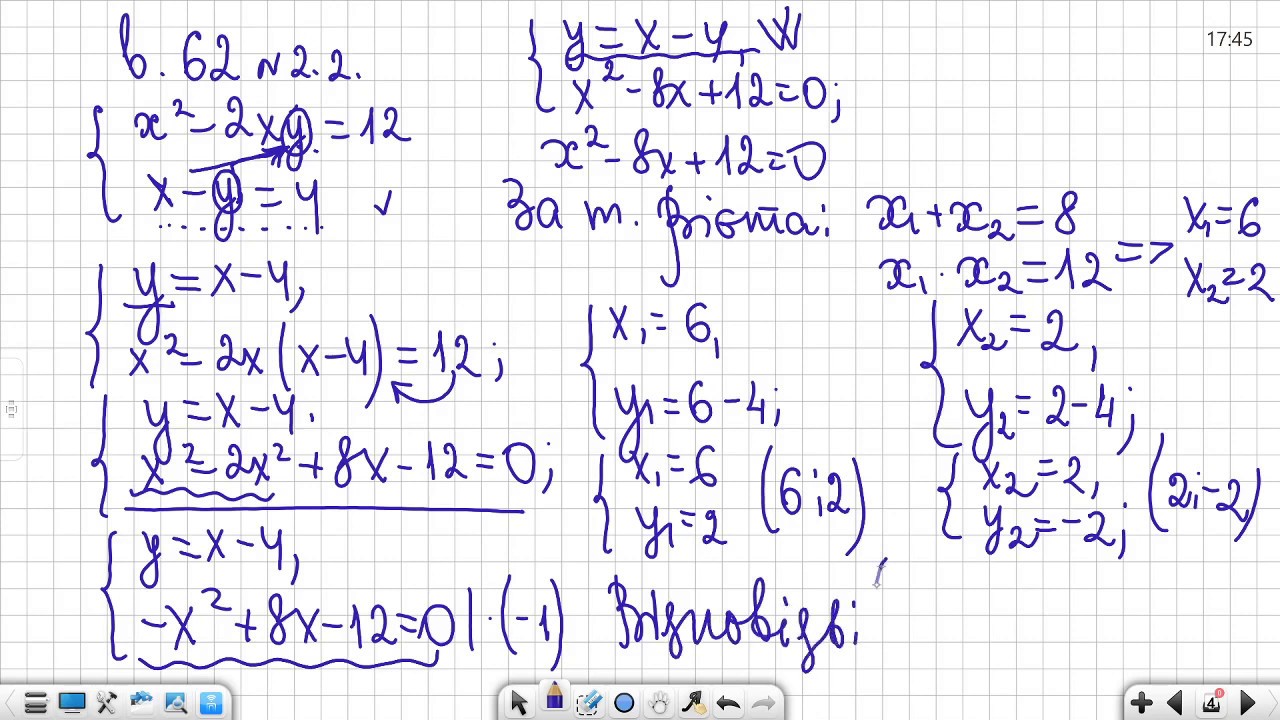 в. 62 № 2.2.
x² - 2xy = 12
x - y = 4
y = x - 4,
x² - 2x(x - 4) = 12;
y = x - 4.
x² - 2x² + 8x - 12 = 0;
y = x - 4,
-x² + 8x - 12 = 0 | · (-1)
y = x - 4,
x² - 8x + 12 = 0;
x² - 8x + 12 = 0
За т. Вієта:
x₁ + x₂ = 8
x₁ · x₂ = 12 =>
x₁ = 6
x₂ = 2
x₁ = 6,
y₁ = 6 - 4;
x₁ = 6
y₁ = 2
(6; 2)
x₂ = 2,
y₂ = 2 - 4;
x₂ = 2,
y₂ = -2;
(2; -2)
Відповідь:
17:45
4
0